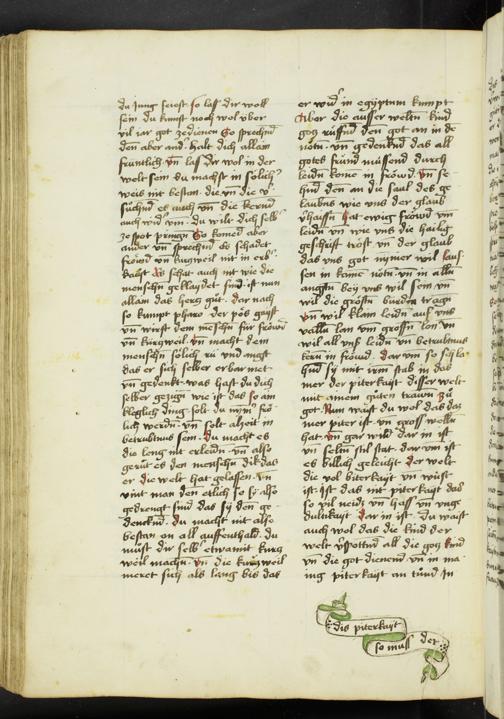 du jung seiest so lass dir woll
sein du kunst noch wol vber
vil iar got ze dienen So sprechnd
den aber and halt dich allain
fruntlich vn lass dir wol in der
welt sein du machst in solich
weis nit bestan die vn die v
suchnd es auch vn die kernd
auch wid vm du wilt dich selb
ze spot pringen So komed aber
ander vn sprechnd es schadet
frowd vn kurzweil nit in erb
kait Es schat auch nit wie die
menschn geklaydet sind ist nun
allain das hercz gut dar nach
so kumpt pharo der pos gayst
vn wirft dem menschn fur frowd
vn kurczweil vn macht dem
menschn solich ru vnd angst
das er sich selber erbarmet
vn gedenkt was hast du dich
selber gezigen wie ist das so am
kleglich ding solt du nymer fro
lich werdn vn solt alzeit in
betrubnus sein du macht es
die leng nit erleidn vn also
gerut es den menschn dik das
er die welt hat gelassen vn
vint man den etlich so sy also
gedrengt sind das sy den ge
denknd du macht nit also
bestan on all auffenthald du
must dir selb etwa mit kurcz
weil machn vn die kurczweil
meret sich als lang bis das
er wid in egyptum kumpt
Aber die ausser weltn kind
gocz ruffnd den got an in de
notn vn gedenknd das all
gotes frund mussend durch
leidn kome in frowd vn se
hnd den an die saul des ge
laubns wie vns der glaub
vhaissn hat ewig frowd vm
leidn vn wie vns die hailig
geschrift trost vn der glaub
das vns got nymer wil laus
sen in kaine notn vn in alln
angstn bey vns wil sein vn
wil die grostn burden tragn
vn wil klain leidn auf vns
valln lan vm grossn lon vn
wil all vnss leidn vn betrubnus
kern in frowd dar vm so schla
hnd sy mit irm stab in das
mer der piterkayt disser welt
mit ainem guten trawn zu
got Nun waist du wol das das
mer piter ist vn gross welln
hat vn gar wild dar in ist
vn seltn stil stat dar vm ist
es billich geleicht der welt
die vol biterkayt vn wust
ist Ist das nit piterkayt das
so vil neidz vn hass vn vnge
dultikayt dar in ist Du waist
auch wol das die kind der
welt vspottnd all die gocz kind
vn die got dienend vn in ma
ing piterkayt an tund In
dis piterkayt
so muss der